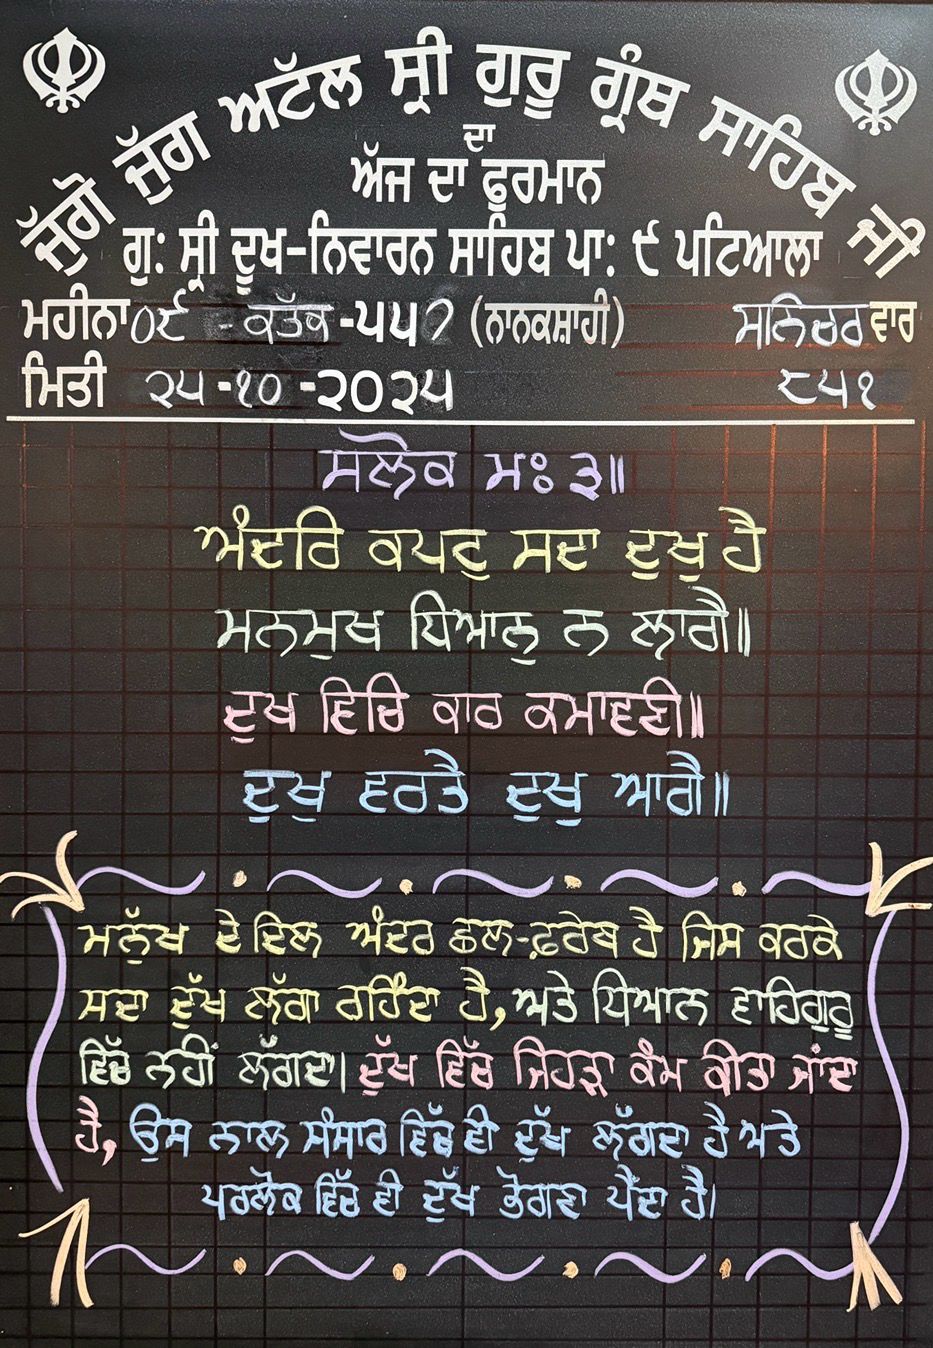 ਜੁੱਗੋ ਜੁੱਗ ਅਟੱਲ ਸ੍ਰੀ ਗੁਰੂ ਗ੍ਰੰਥ ਸਾਹਿਬ ਜੀ
ਦਾ
ਅੱਜ ਦਾ ਫੁਰਮਾਨ
ਗੁ: ਸ੍ਰੀ ਦੂਖ-ਨਿਵਾਰਨ ਸਾਹਿਬ ਪਾ: ੯ ਪਟਿਆਲਾ
ਮਹੀਨਾ ੦੯ - ਕੱਤਕ -੫੫੭ (ਨਾਨਕਸ਼ਾਹੀ) ਸਨਿਚਰ ਵਾਰ
ਮਿਤੀ ੨੫ -੧੦ -੨੦੨੫ ੮੫੧
ਸਲੋਕ ਮਃ ੩॥
ਅੰਦਰਿ ਕਪਟੁ ਸਦਾ ਦੁਖੁ ਹੈ
ਮਨਮੁਖ ਧਿਆਨੁ ਨ ਲਾਗੈ॥
ਦੁਖ ਵਿਚਿ ਕਾਰ ਕਮਾਵਣੀ॥
ਦੁਖੁ ਵਰਤੈ ਦੁਖੁ ਆਗੈ॥
ਮਨੁੱਖ ਦੇ ਦਿਲ ਅੰਦਰ ਛਲ-ਫ਼ਰੇਬ ਹੈ ਜਿਸ ਕਰਕੇ
ਸਦਾ ਦੁੱਖ ਲੱਗਾ ਰਹਿੰਦਾ ਹੈ, ਅਤੇ ਧਿਆਨ ਵਾਹਿਗੁਰੂ
ਵਿੱਚ ਨਹੀਂ ਲੱਗਦਾ। ਦੁੱਖ ਵਿੱਚ ਜਿਹੜਾ ਕੰਮ ਕੀਤਾ ਜਾਂਦਾ
ਹੈ, ਉਸ ਨਾਲ ਸੰਸਾਰ ਵਿੱਚ ਵੀ ਦੁੱਖ ਲੱਗਦਾ ਹੈ ਅਤੇ
ਪਰਲੋਕ ਵਿੱਚ ਵੀ ਦੁੱਖ ਭੋਗਣਾ ਪੈਂਦਾ ਹੈ।